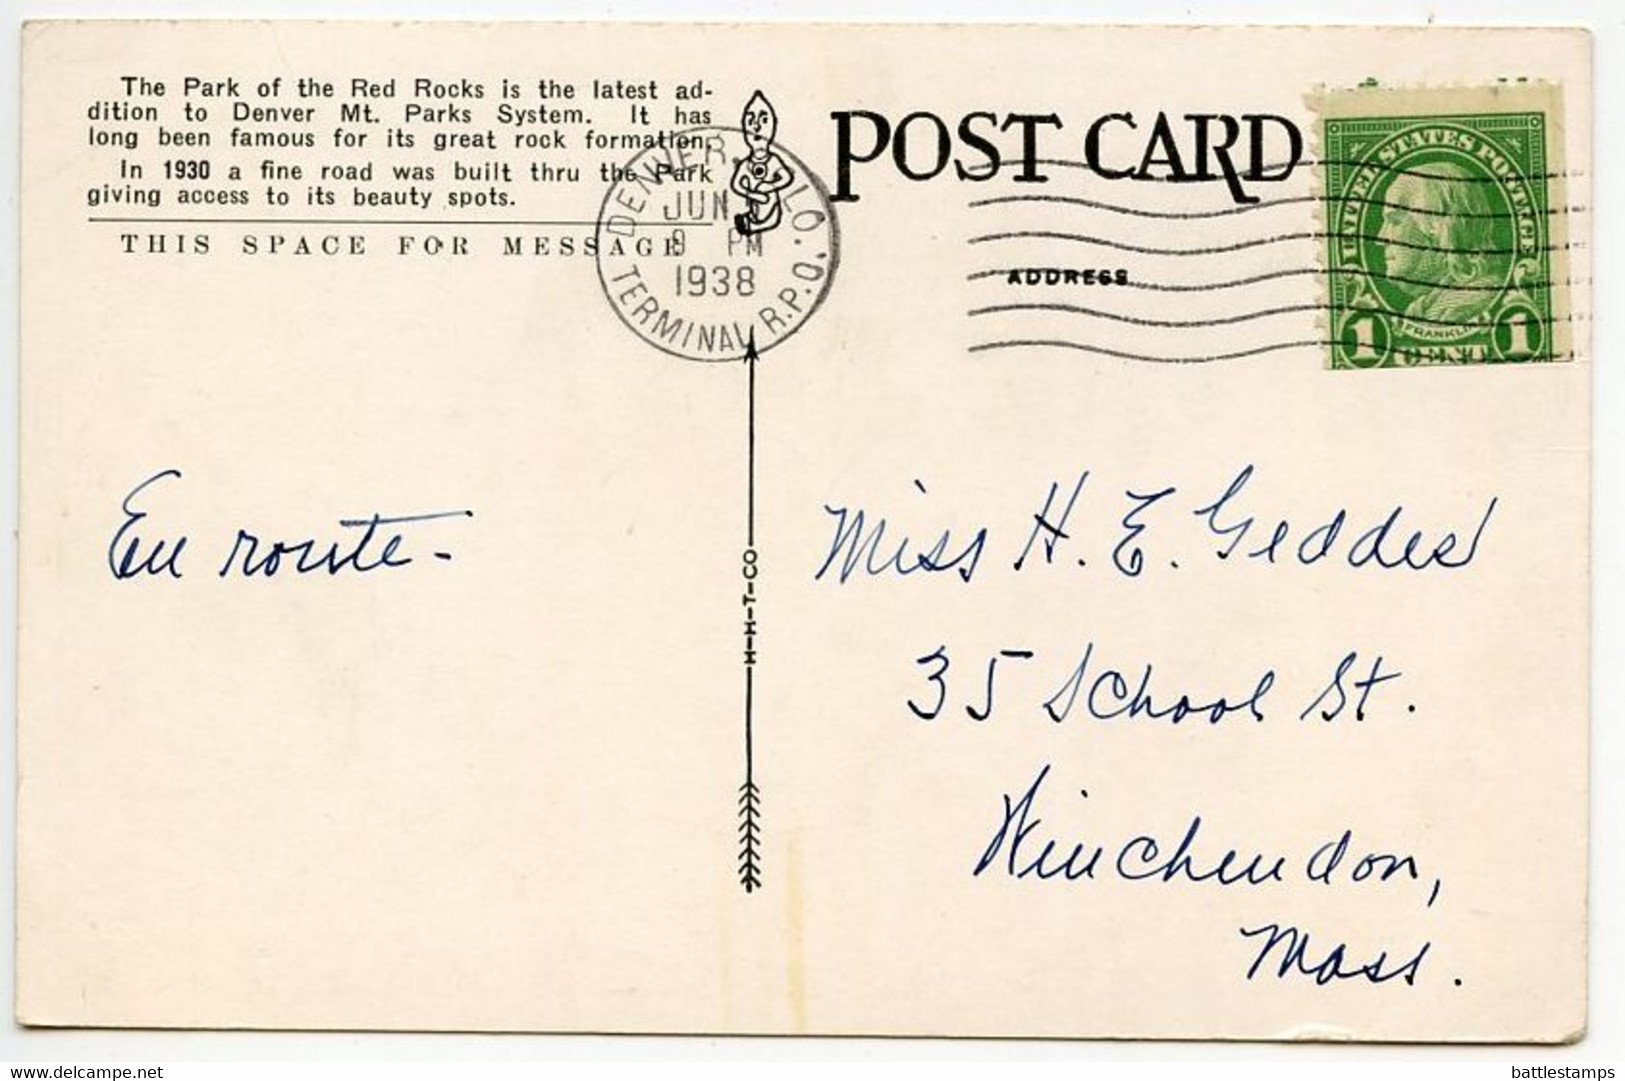 The Park of the Red Rocks is the latest ad-
dition to Denver Mt. Parks System. It has
long been famous for its great rock formation.
In 1930 a fine road was built thru the Park
giving access to its beauty spots.
THIS SPACE FOR MESSAGE
DENVER, LO.
JUN
9 PM
1938
TERMINAL R.P.O.
POST CARD
ADDRESS
UNITED STATES POSTAGE
FRANKLIN
1 CENT 1
En route-
H-H-T-CO
Miss H. E. Geddes
35 School St.
Winchendon,
Mass.
delcampe.net
battlestamps